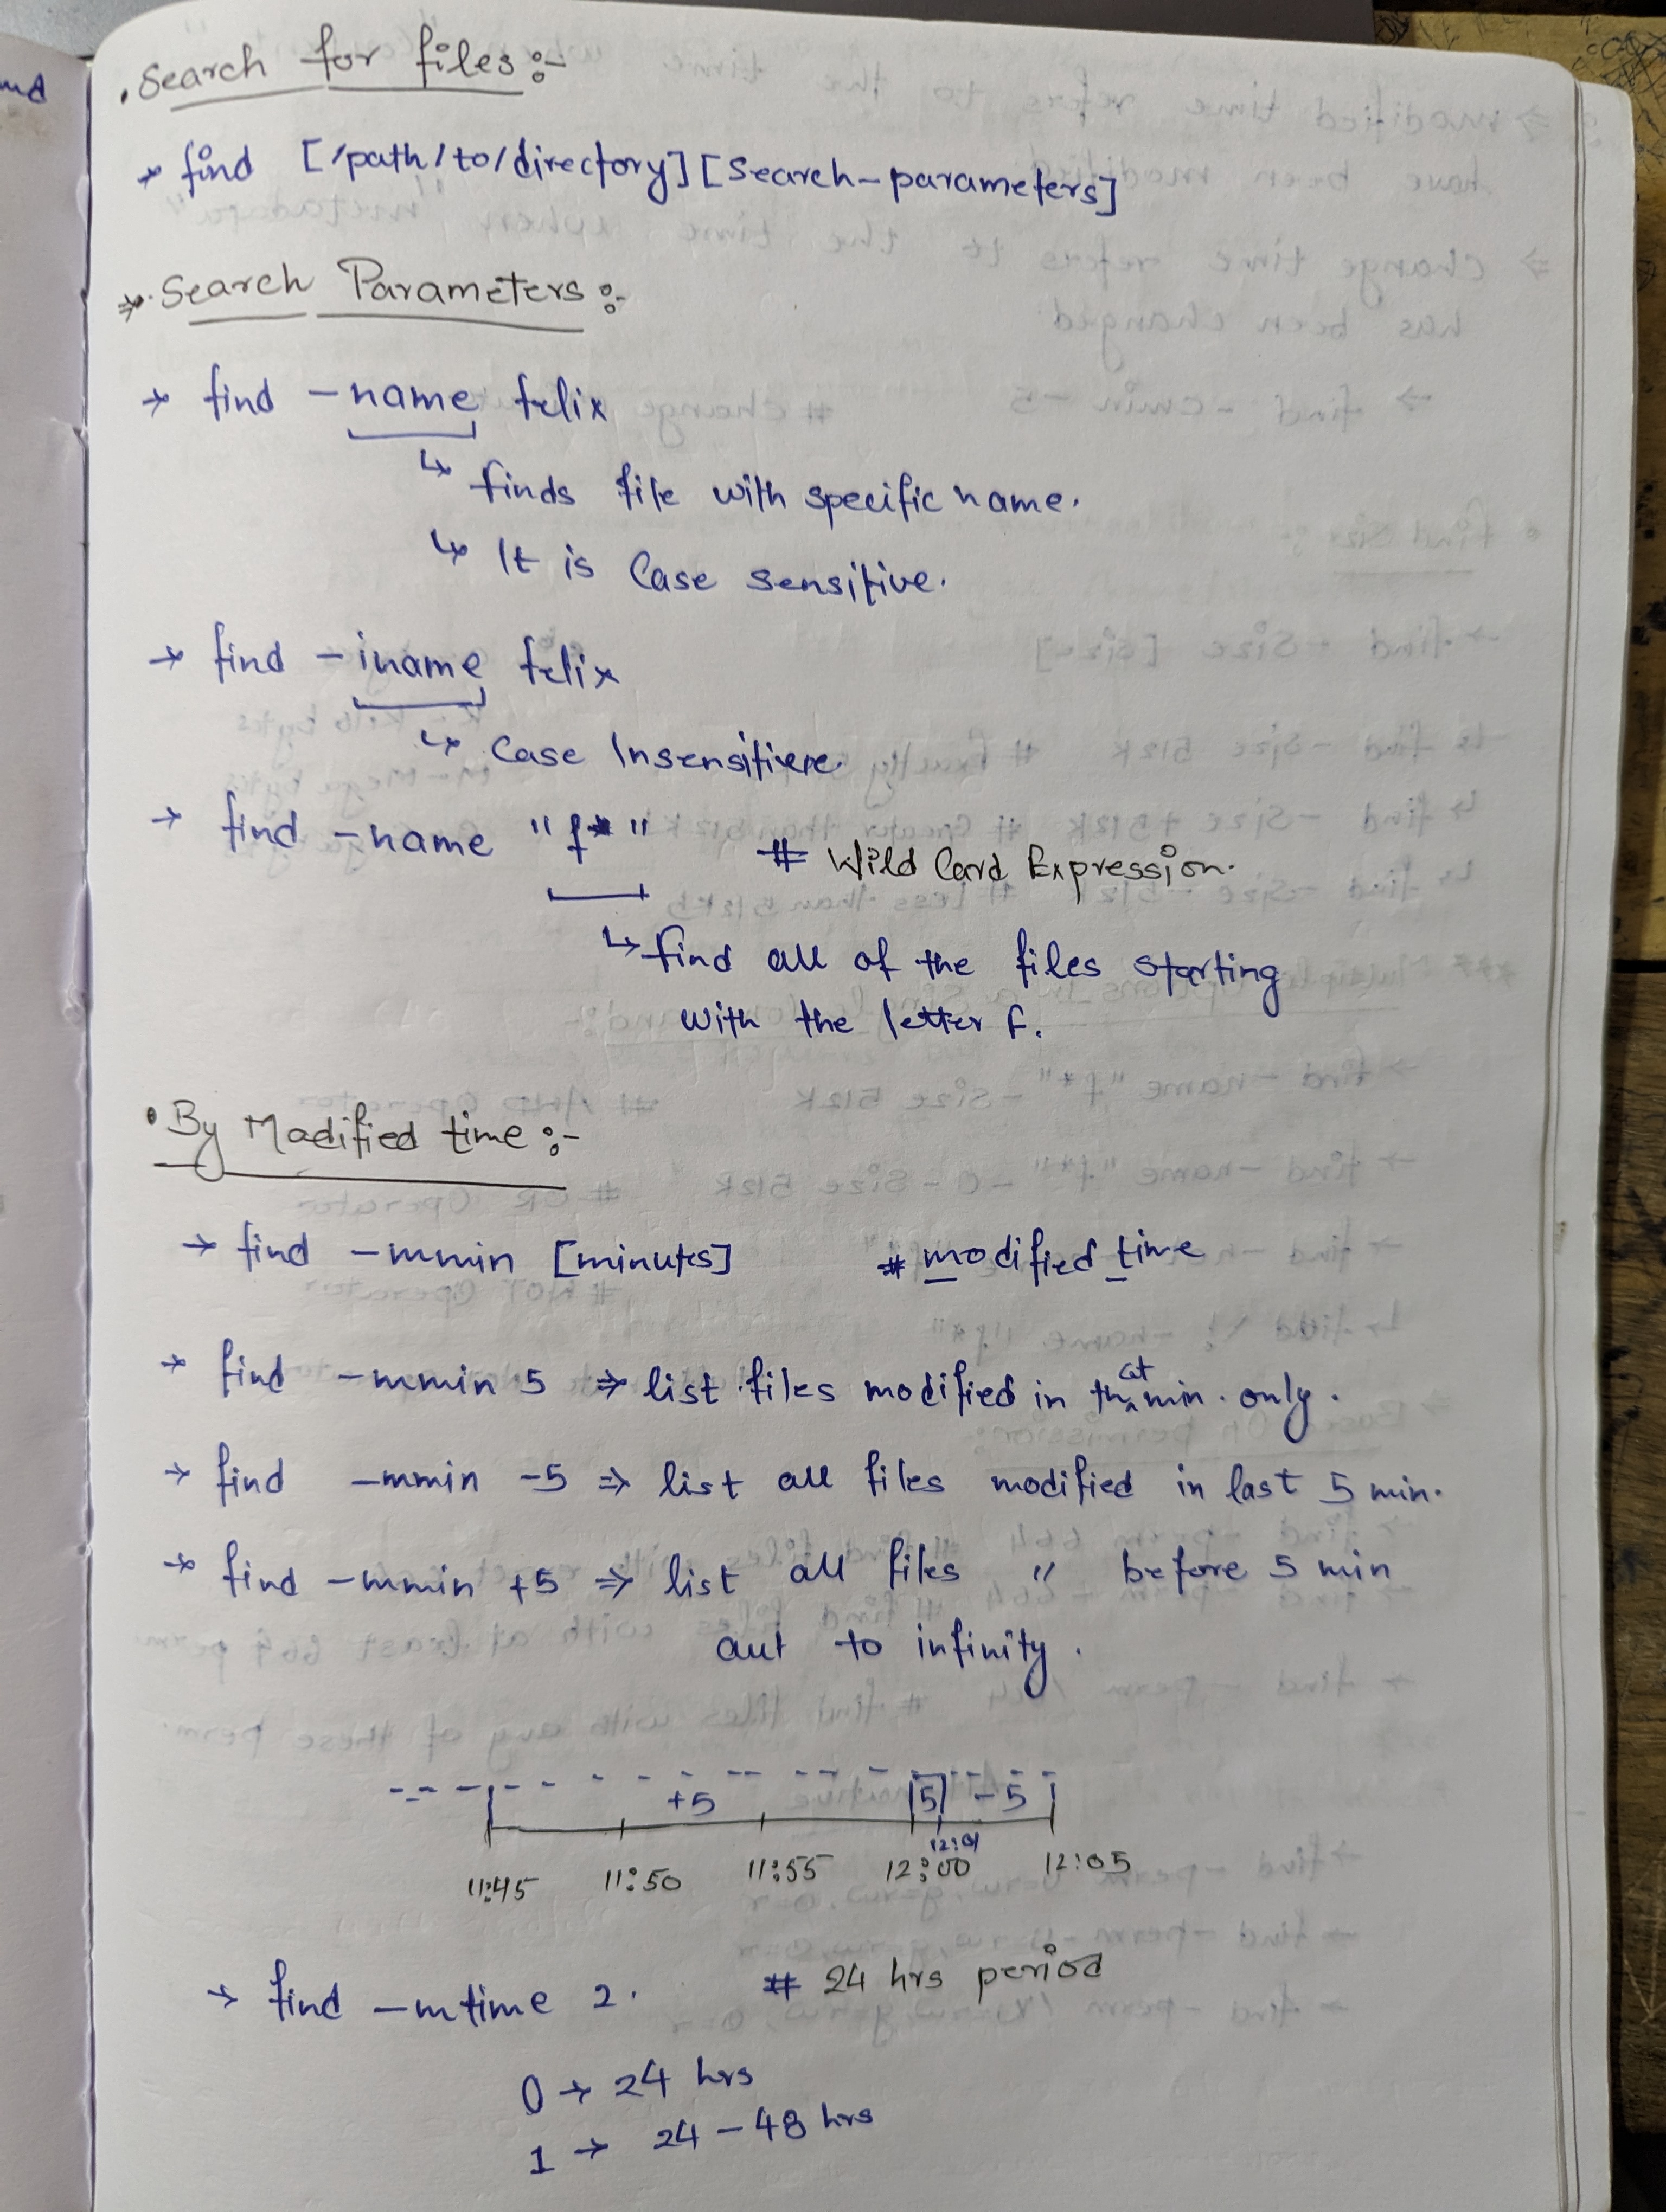 . Search for files :-
→ find [/path/to/directory] [Search-parameters]
→ Search Parameters :-
→ find -name felix
↳ finds file with specific name.
↳ It is Case sensitive.
→ find -iname felix
↳ Case Insensitive.
→ find -name "f*" # Wild Card Expression.
↳ find all of the files starting
with the letter f.
• By Modified time :-
→ find -mmin [minutes] # modified time
→ find -mmin 5 ⇒ list files modified in that min. only.
→ find -mmin -5 ⇒ list all files modified in last 5 min.
→ find -mmin +5 ⇒ list all files " before 5 min
out to infinity.
+5 5 -5
12:01
11:45 11:50 11:55 12:00 12:05
→ find -mtime 2. # 24 hrs period
0 → 24 hrs
1 → 24 - 48 hrs